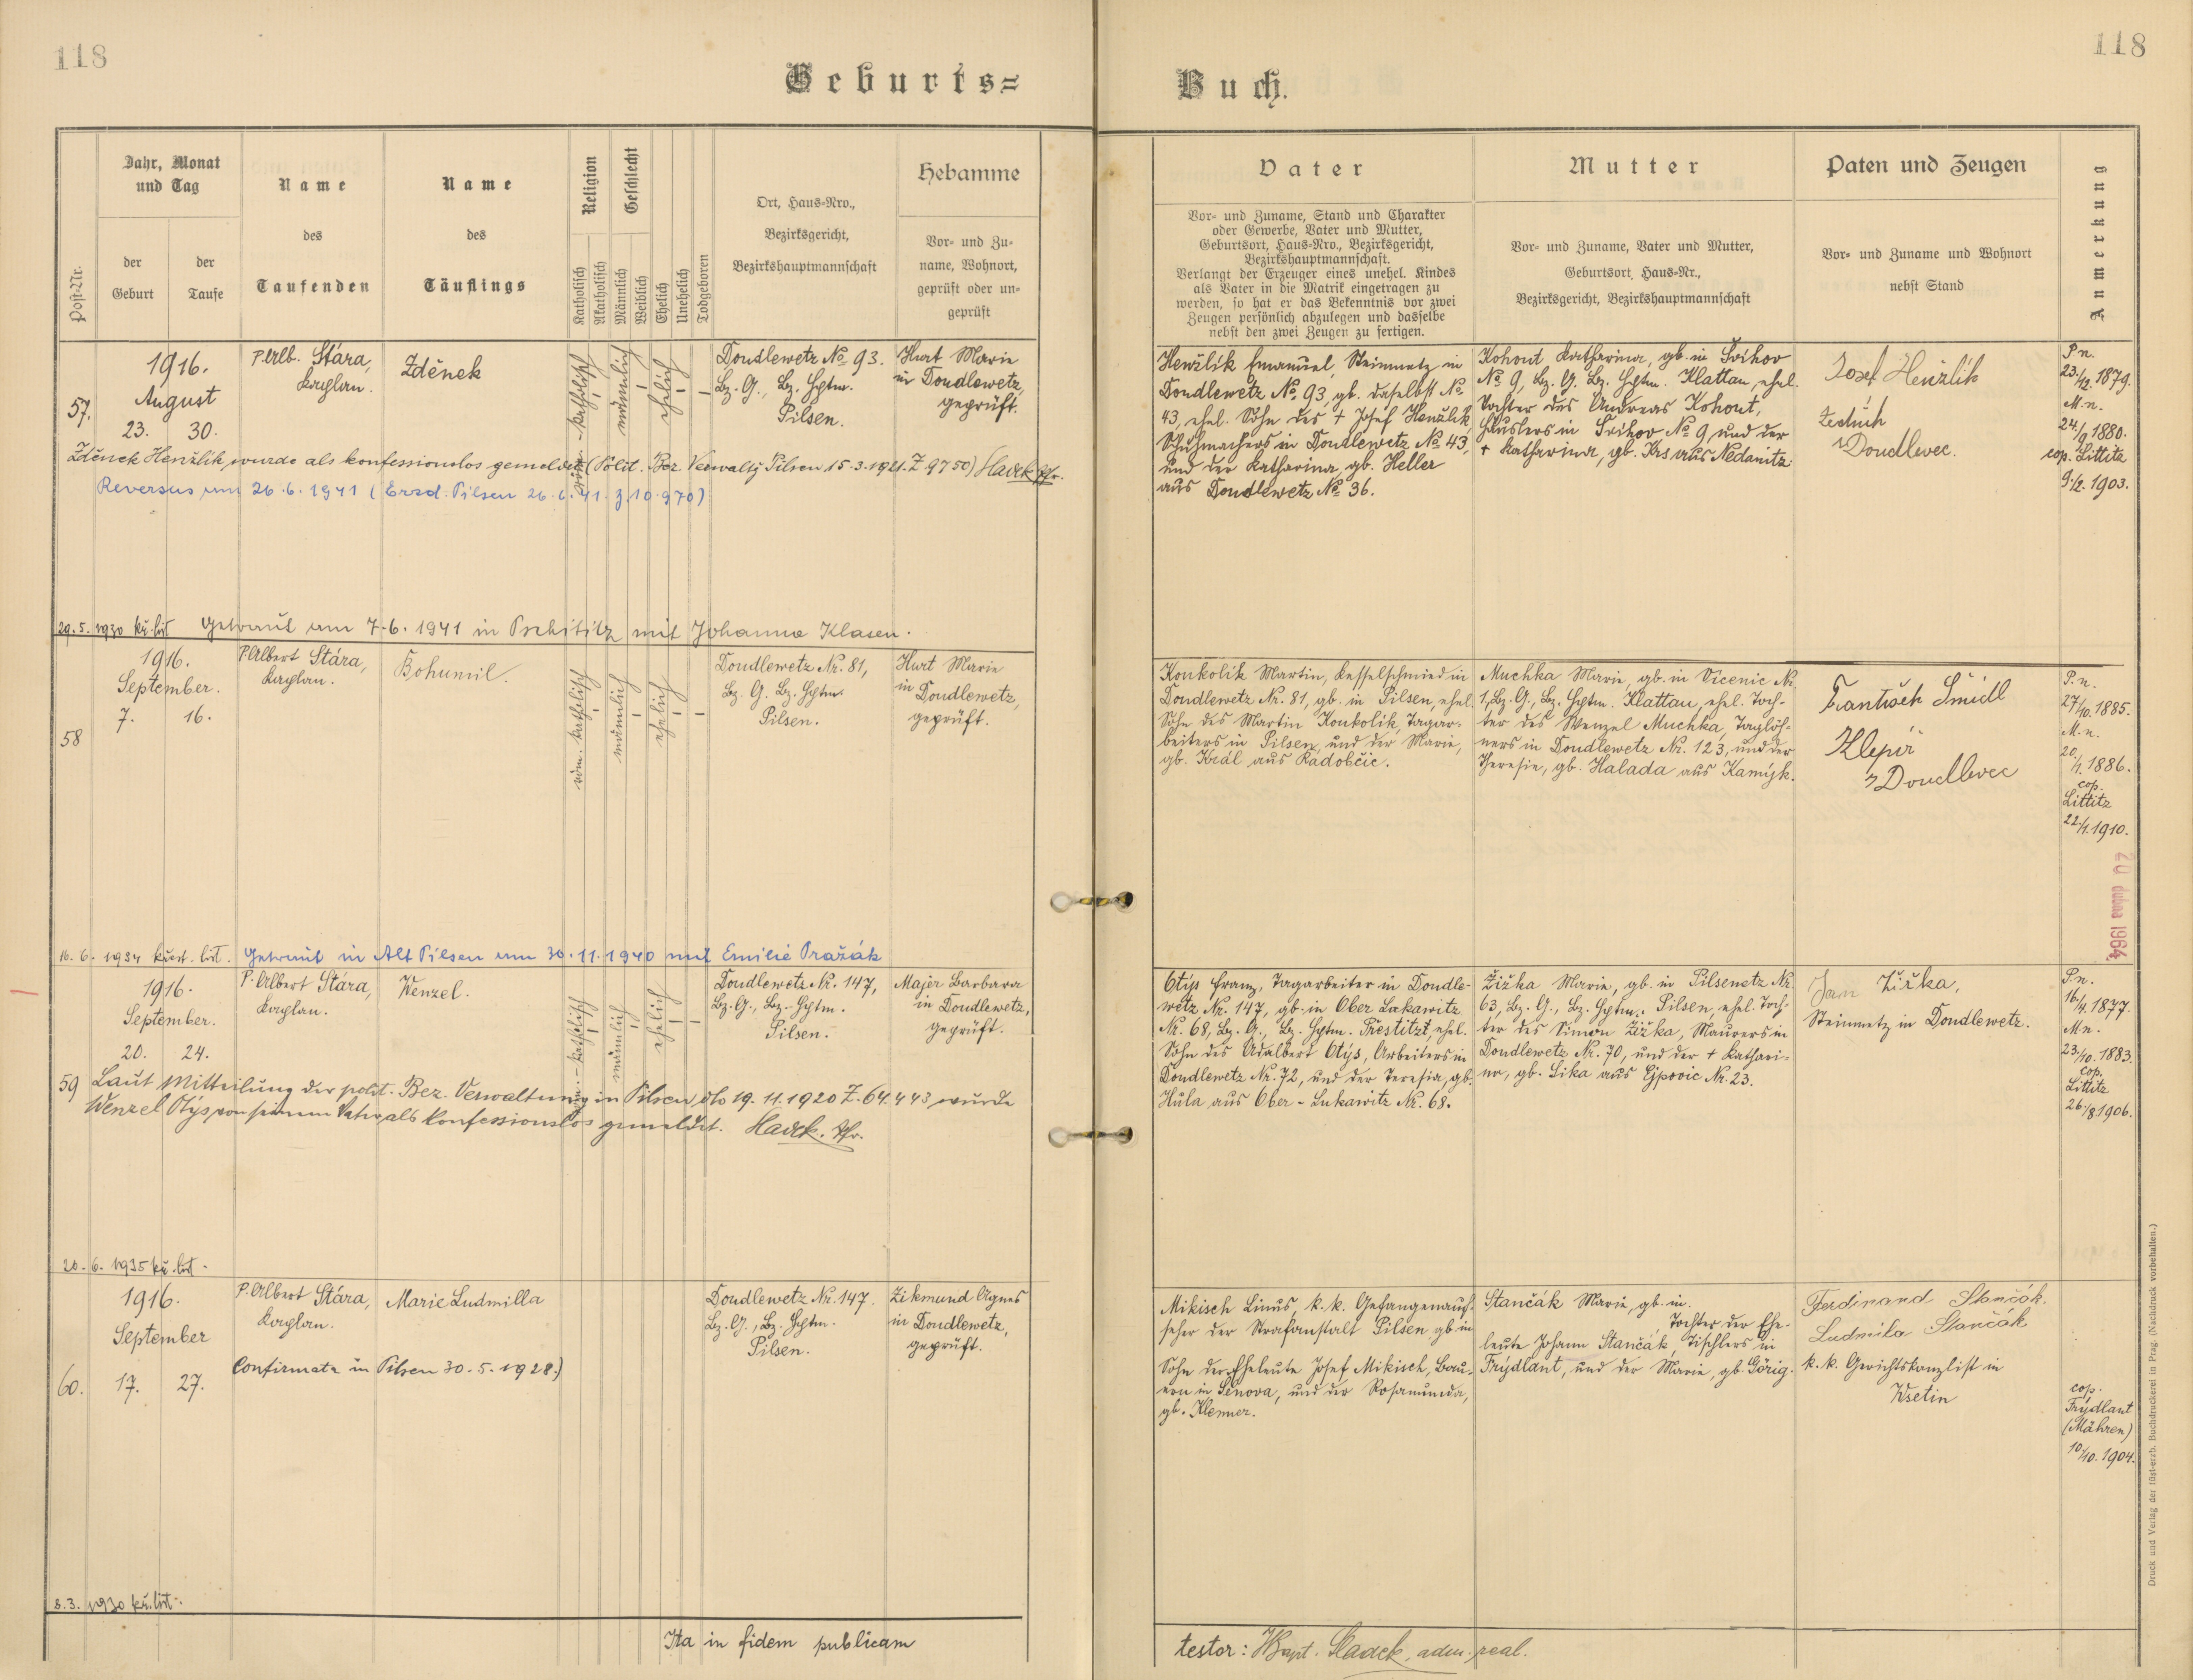 118
118
Geburts=
Buch.
Post-Nr.
Jahr, Monat
und Tag
der
Geburt
der
Taufe
Name
des
Taufenden
Name
des
Täuflings
Religion
Katholisch
Akatholisch
Geschlecht
Männlich
Weiblich
Ehelich
Unehelich
Todgeboren
Ort, Haus-Nro.,
Bezirksgericht,
Bezirkshauptmannschaft
Hebamme
Vor- und Zu-
name, Wohnort,
geprüft oder un-
geprüft
Vater
Vor- und Zuname, Stand und Charakter
oder Gewerbe, Vater und Mutter,
Geburtsort, Haus-Nro., Bezirksgericht,
Bezirkshauptmannschaft.
Verlangt der Erzeuger eines unehel. Kindes
als Vater in die Matrik eingetragen zu
werden, so hat er das Bekenntnis vor zwei
Zeugen persönlich abzulegen und dasselbe
nebst den zwei Zeugen zu fertigen.
Mutter
Vor- und Zuname, Vater und Mutter,
Geburtsort, Haus-Nr.,
Bezirksgericht, Bezirkshauptmannschaft
Paten und Zeugen
Vor- und Zuname und Wohnort
nebst Stand
Anmerkung
57.
1916.
August
23. 30.
P. Alb. Stára,
Kaplan.
Zděnek
röm.-katholisch
männlich
ehelich
Doudlewetz No 93.
Bz. G., Bz. Hptm.
Pilsen.
Hurt Marie
in Doudlewetz,
geprüft.
Zděnek Henžlik, wurde als konfessionslos gemeldet (Polit. Bez. Verwaltg Pilsen 15.3.1921. Z 9750) Hadek Pfr.
Reversus am 26.6.1941 (Erzd. Pilsen 26.6.41. z. 10.970)
29.5.1930 kř. list Getraut am 7.6.1941 in Pschititz mit Johanna Klasen.
Henžlik Emanuel, Steinmetz in
Doudlewetz No 93, gb. daselbst No
43, ehel. Sohn des + Josef Henžlik,
Schuhmachers in Doudlewetz No 43,
und der Katharina, gb. Heller
aus Doudlewetz No 36.
Kohout Katharina, gb. in Švihov
No 9, Bz. G. Bz. Hptm. Klattau, ehel.
Tochter des Andreas Kohout,
Häuslers in Švihov No 9 und der
+ Katharina, gb. Krs aus Nedanitz.
Josef Henžlík
z Doudlevec.
P. n.
23./12. 1879.
M. n.
24./9. 1880.
cop. Littitz
9./2. 1903.
58
1916.
September.
7. 16.
P. Albert Stára,
Kaplan.
Bohumil.
röm. katholisch
männlich
ehelich
Doudlewetz Nr. 81,
Bz. G. Bz. Hptm.
Pilsen.
Hurt Marie
in Doudlewetz,
geprüft.
16.6.1934 křest. list. Getraut in Alt Pilsen am 30.11.1940 mit Emilie Pražák
Konkolik Martin, Kesselschmied in
Doudlewetz Nr. 81, gb. in Pilsen, ehel.
Sohn des Martin Konkolík, Tagar-
beiters in Pilsen, und der Marie,
gb. Král aus Radobčic.
Muchka Marie, gb. in Vícenic Nr.
1, Bz. G., Bz. Hptm. Klattau, ehel. Toch-
ter des Wenzel Muchka, Taglöh-
ners in Doudlewetz Nr. 123, und der
Theresie, gb. Halada aus Kamýk.
František Šmídl
Klepíř
z Doudlevec
P. n.
27/10. 1885.
M. n.
20./1. 1886.
cop.
Littitz
22./1. 1910.
20 dubna 1964
59
1916.
September.
20. 24.
P. Albert Stára,
Kaplan.
Wenzel.
röm.-katholisch
männlich
ehelich
Doudlewetz Nr. 147,
Bz. G., Bz. Hptm.
Pilsen.
Majer Barbara
in Doudlewetz,
geprüft.
Laut Mitteilung der polit. Bez. Verwaltung in Pilsen dto 19.11.1920 Z. 64.443 wurde
Wenzel Otýs von seinem Vater als konfessionslos gemeldet. Hadek. Pfr.
20.6.1935 kř. list.
Otýs Franz, Tagarbeiter in Doudle-
wetz Nr. 147, gb. in Ober Lukawitz
Nr. 68, Bz. G., Bz. Hptm. Přestitzt, ehel.
Sohn des Adalbert Otýs, Arbeiters in
Doudlewetz Nr. 72, und der Teresia, gb.
Hula aus Ober-Lukawitz Nr. 68.
Žižka Marie, gb. in Pilsenetz Nr.
63, Bz. G., Bz. Hptm. Pilsen, ehel. Toch-
ter des Simon Žižka, Maurers in
Doudlewetz Nr. 70, und der + Kathari-
na, gb. Sika aus Ejpovic Nr. 23.
Jan Žižka,
Steinmetz in Doudlewetz.
P. n.
16./4. 1877.
M. n.
23./10. 1883.
cop.
Littitz
26./8 1906.
60.
1916.
September
17. 27.
P. Albert Stára,
Kaplan.
Marie Ludmilla
Doudlewetz Nr. 147.
Bz. G., Bz. Hptm.
Pilsen.
Zikmund Agnes
in Doudlewetz,
geprüft.
Confirmata in Pilsen 30.5.1928.)
8.3.1930 kř. list.
Mikisch Linus, k. k. Gefangenauf-
seher der Strafanstalt Pilsen, gb. in
Sohn der Eheleute Josef Mikisch, Bau-
ern in Senova, und der Rosamunda,
gb. Klenner.
Stančák Marie, gb. in.
Tochter der Ehe-
leute Johann Stančák, Tischlers in
Frýdlant, und der Marie, gb. Görig.
Ferdinand Stančák.
Ludmila Stančák
k. k. Gerichtskanzlist in
Wsetin
cop.
Frýdlant
(Mähren)
10./10. 1904.
Ita in fidem publicam
testor: Hadek, adm. real.
Druck und Verlag der fürst-erzb. Buchdruckerei in Prag. (Nachdruck vorbehalten.)